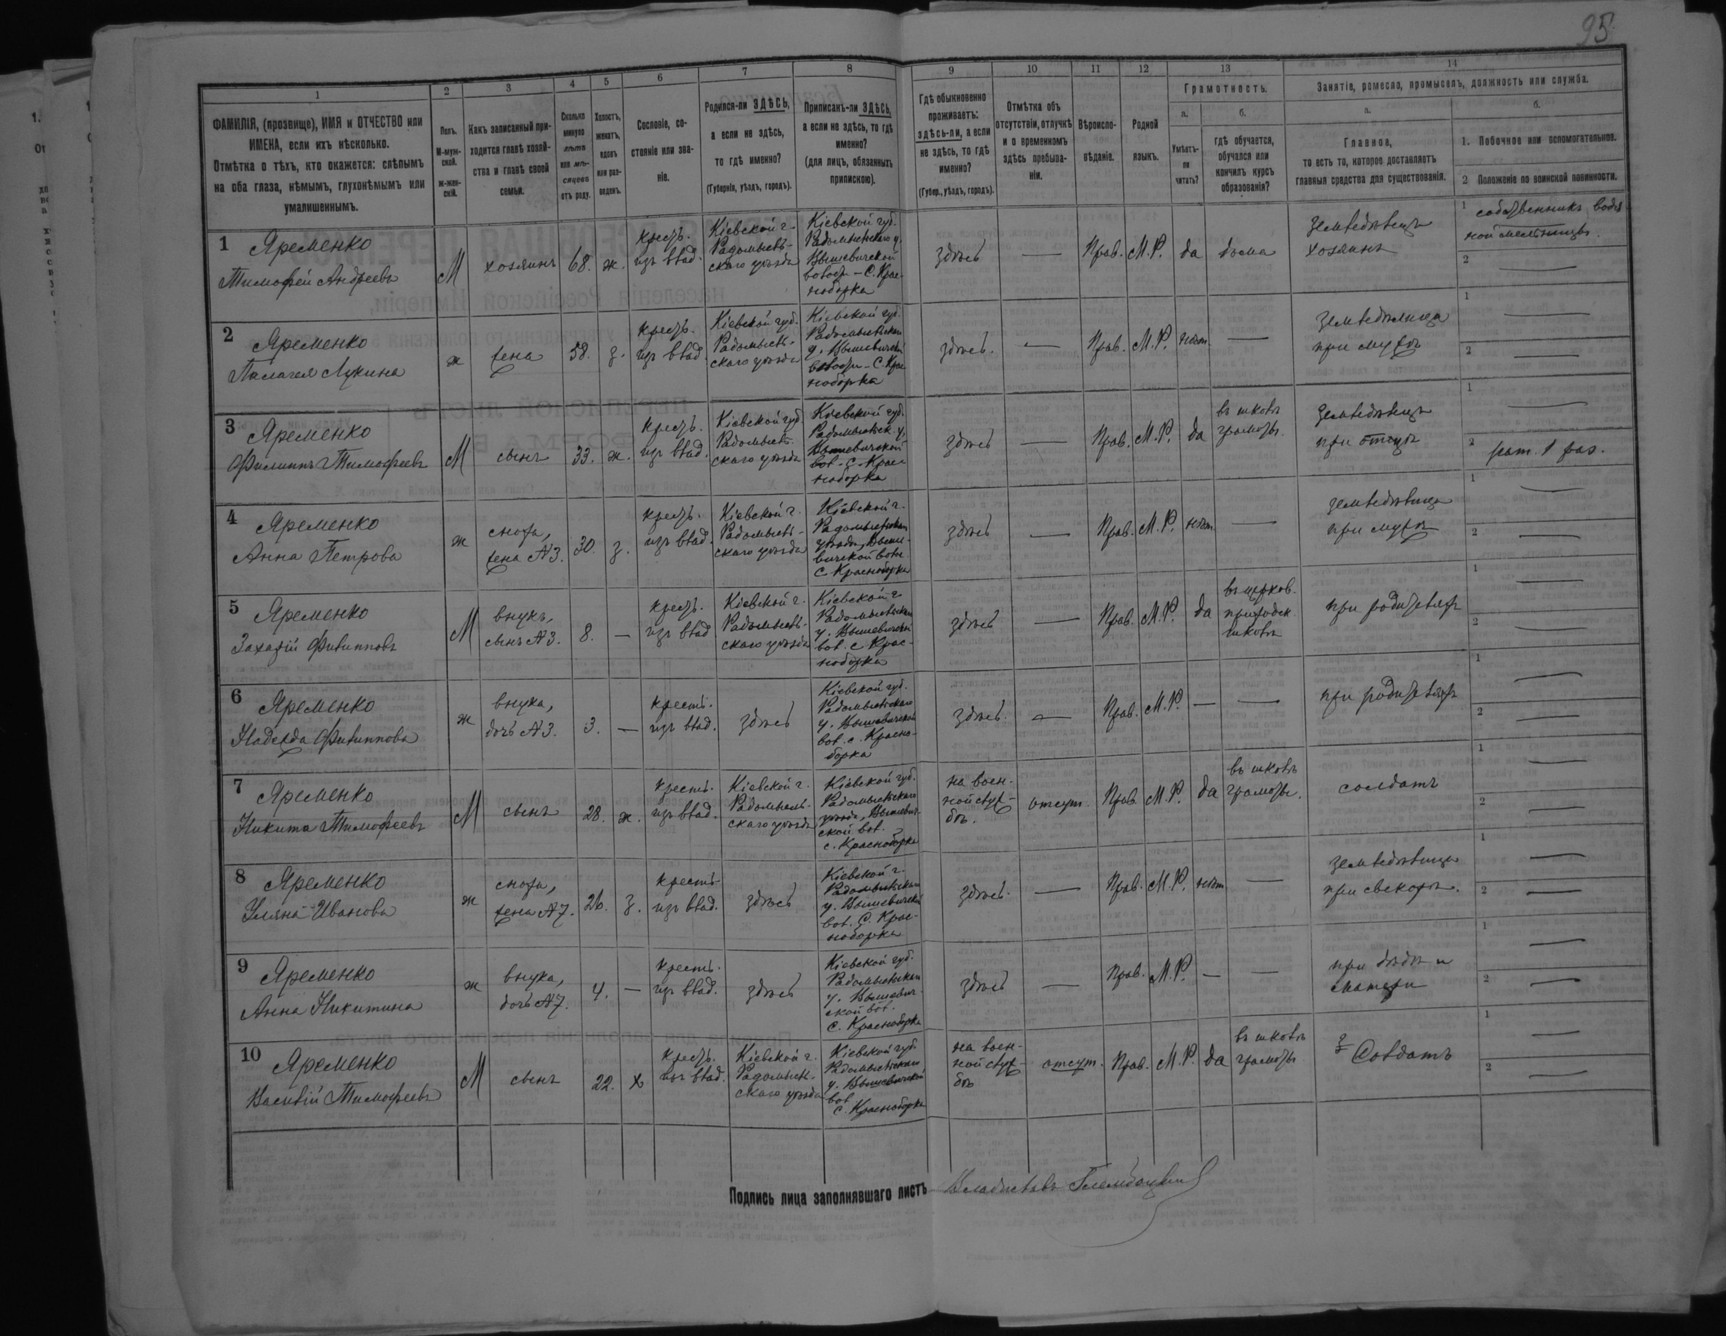 95
1
ФАМИЛІЯ, (прозвище), ИМЯ и ОТЧЕСТВО или
ИМЕНА, если ихъ нѣсколько.
Отмѣтка о тѣхъ, кто окажется: слѣпымъ
на оба глаза, нѣмымъ, глухонѣмымъ или
умалишеннымъ.
2
Полъ.
М-муж-
ской.
Ж-жен-
скій.
3
Какъ записанный при-
ходится главѣ хозяй-
ства и главѣ своей
семьи.
4
Сколько
минуло
лѣтъ
или мѣ-
сяцевъ
отъ роду.
5
Холостъ,
женатъ,
вдовъ
или раз-
веденъ.
6
Сословіе, со-
стояніе или зва-
ніе.
7
Родился-ли ЗДѢСЬ,
а если не здѣсь,
то гдѣ именно?
(Губернія, уѣздъ, городъ).
8
Приписанъ-ли ЗДѢСЬ,
а если не здѣсь, то гдѣ
именно?
(для лицъ, обязанныхъ
припискою).
9
Гдѣ обыкновенно
проживаетъ:
здѣсь-ли, а если
не здѣсь, то гдѣ
именно?
(Губер., уѣздъ, городъ).
10
Отмѣтка объ
отсутствіи, отлучкѣ
и о временномъ
здѣсь пребыва-
ніи.
11
Вѣроиспо-
вѣданіе.
12
Родной
языкъ.
13
Грамотность.
а.
Умѣетъ-
ли
читать?
б.
гдѣ обучается,
обучался или
кончилъ курсъ
образованія?
14
Занятія, ремесло, промыселъ, должность или служба.
а.
Главное,
то есть то, которое доставляетъ
главныя средства для существованія.
б.
1. Побочное или вспомогательное.
2 Положеніе по воинской повинности.
1
Яременко
Тимофей Андреевъ
М
хозяинъ
68.
ж.
крест.
изъ влад.
Кіевской г.
Радомысль-
скаго уѣзда
Кіевской губ.
Радомысльскаго у.
Вышевичской
волост. - С. Крас-
ноборка
здѣсь
—
Прав.
М. Р.
да
дома
Земледѣлецъ
хозяинъ
1
собственникъ водя-
ной мельницы.
2
—
2
Яременко
Палагея Лукина
ж
жена
58.
з.
крест.
изъ влад.
Кіевской губ.
Радомысль-
скаго уѣзда
Кіевской губ.
Радомысльскаго
у. Вышевичской
волост. - С. Крас-
ноборка
здѣсь.
—
Прав.
М. Р.
нѣтъ
—
Земледѣлица
при мужѣ
1
—
2
—
3
Яременко
Филиппъ Тимофеевъ
М
сынъ
33.
ж.
крест.
изъ влад.
Кіевской губ.
Радомысль-
скаго уѣзда
Кіевской губ.
Радомысльск. у.
Вышевичской
вол. - С. Крас-
ноборка
здѣсь
—
Прав.
М. Р.
да
въ школѣ
грамоты
Земледѣлецъ
при отцѣ
1
—
2
рат. 1 раз.
4
Яременко
Анна Петрова
ж
сноха,
жена №3.
30.
з.
крест.
изъ влад.
Кіевской г.
Радомысль-
скаго уѣзда
Кіевской г.
Радомысльскаго
уѣзда, Выше-
вичской вол.
С. Красноборка
здѣсь
—
Прав.
М. Р.
нѣтъ
—
земледѣлица
при мужѣ
1
—
2
—
5
Яременко
Захарій Филипповъ
М
внукъ,
сынъ №3.
8.
—
крест.
изъ влад
Кіевской г.
Радомысль-
скаго уѣзда
Кіевской г.
Радомысльскаго
у. Вышевичской
вол. с. Крас-
ноборка
здѣсь
—
Прав.
М. Р.
да
въ церков.
приходск
школѣ
при родителяхъ
1
—
2
—
6
Яременко
Надежда Филиппова
ж
внука,
дочь №3.
3.
—
крест.
изъ влад.
здѣсь
Кіевской губ.
Радомысльскаго
у. Вышевичской
вол. с. Красно-
борка
здѣсь
—
Прав.
М. Р.
—
—
при родителяхъ
1
—
2
—
7
Яременко
Никита Тимофеевъ
М
сынъ
28.
ж.
крест.
изъ влад.
Кіевской г.
Радомысль-
скаго уѣзда
Кіевской губ.
Радомысльскаго
уѣзда, Вышевич-
ской вол.
с. Красноборка
на воен-
ной служ-
бѣ.
отсут.
Прав
М. Р.
да
въ школѣ
грамоты.
солдатъ
1
—
2
—
8
Яременко
Уляна Иванова
ж
сноха,
жена №7.
26.
з.
крест.
изъ влад.
здѣсь
Кіевской г.
Радомысльскаго
у. Вышевичской
вол. С. Крас-
ноборка
здѣсь.
—
Прав.
М. Р.
нѣтъ
—
земледѣлица
при свекорѣ.
1
—
2
—
9
Яременко
Анна Никитина
ж
внука,
дочь №7.
4.
—
крест.
изъ влад.
здѣсь
Кіевской губ.
Радомысльскаго
у. Вышевич-
ской вол.
С. Красноборка
здѣсь
—
Прав.
М. Р.
—
—
при дѣдѣ и
матери
1
—
2
—
10
Яременко
Василій Тимофеевъ
М
сынъ
22.
х
крест.
изъ влад.
Кіевской г.
Радомысль-
скаго уѣзда
Кіевской губ
Радомысльскаго
у. Вышевичской
вол
с. Красноборка
на воен-
ной служ-
бѣ
отсут.
Прав.
М. Р.
да
въ школѣ
грамоты
Солдатъ
1
—
2
—
Подпись лица заполнявшаго листъ Владиславъ